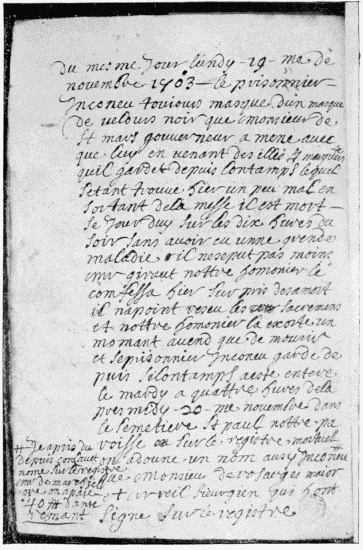 du mesme jour lundy - 19 - me de
novembre 1703 - le prisonnier
Inconeu toujours masque dun masque
de velours noir que monsieur de
St mars gouverneur a mene avec
que luy en venant des illes
quil gardet depuis lontamps lequel
setant trouve hier un peu mal en
sortant de la messe il est mort
le jour duy sur les dix hures du
soir sans avoir eu unne grende
maladie il ne se put pas moins
mr giraut nottre homonier le
comfessa hier surpris de sa mort
il na point reseu les sacremens
et nottre homonier la exorte un
momant avend que de mourir
et se prisonnier Inconeu garde de
puis silontamps a este entere
le mardy a quattre hures de la
pres midy - 20 - me novembre dans
le semetiere St paul nottre pa
roisse sur le registre mortuel
on a donne un nom aussy Inconeu
que monsieur de rosarges maior
et arreil sieurgien qui hont
signe sur le registre
je apris du
depuis
nome sur le registre
mr de
on a paie
40 tt dant
remant